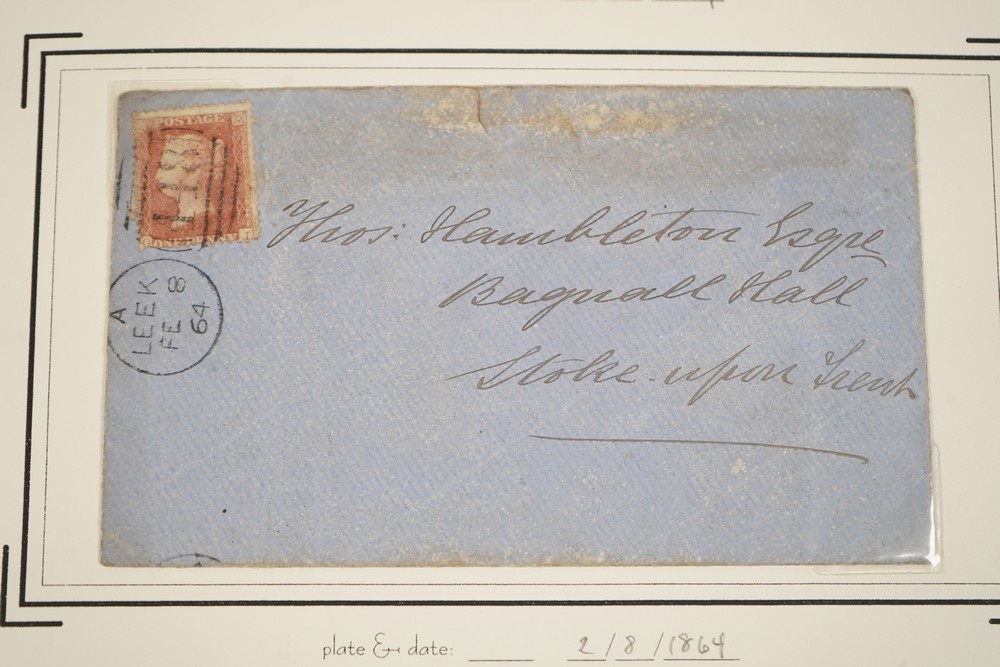 POSTAGE
ONE PENNY
I
Thos: Hambleton Esqre
Bagnall Hall
Stoke-upon Trent
A
LEEK
FE 8
64
plate & date: 2/8/1864